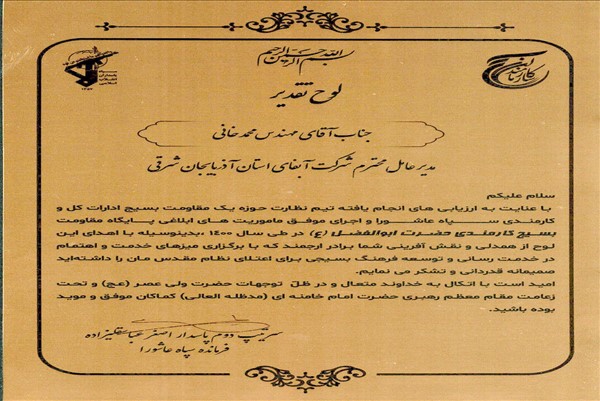 بسم الله الرحمن الرحیم
سپاه
پاسداران
انقلاب
اسلامی
لوح تقدیر
جناب آقای مهندس محمد خانی
مدیر عامل محترم شرکت آبفای استان آذربایجان شرقی
سلام علیکم
با عنایت به ارزیابی های انجام یافته تیم نظارت حوزه یک مقاومت بسیج ادارات کل و
کارمندی سپاه عاشورا و اجرای موفق ماموریت های ابلاغی پایگاه مقاومت
بسیج کارمندی حضرت ابوالفضل (ع) در طی سال ۱۴۰۰، بدینوسیله با اهدای این
لوح از همدلی و نقش آفرینی شما برادر ارجمند که با برگزاری میزهای خدمت و اهتمام
در خدمت رسانی و توسعه فرهنگ بسیجی برای اعتلای نظام مقدس مان را داشته‌اید
صمیمانه قدردانی و تشکر می نمایم.
امید است با اتکال به خداوند متعال و در ظل توجهات حضرت ولی عصر (عج) و تحت
زعامت مقام معظم رهبری حضرت امام خامنه ای (مدظله العالی) کماکان موفق و موید
بوده باشید.
سرتیپ دوم پاسدار اصغر عباسقلیزاده
فرمانده سپاه عاشورا